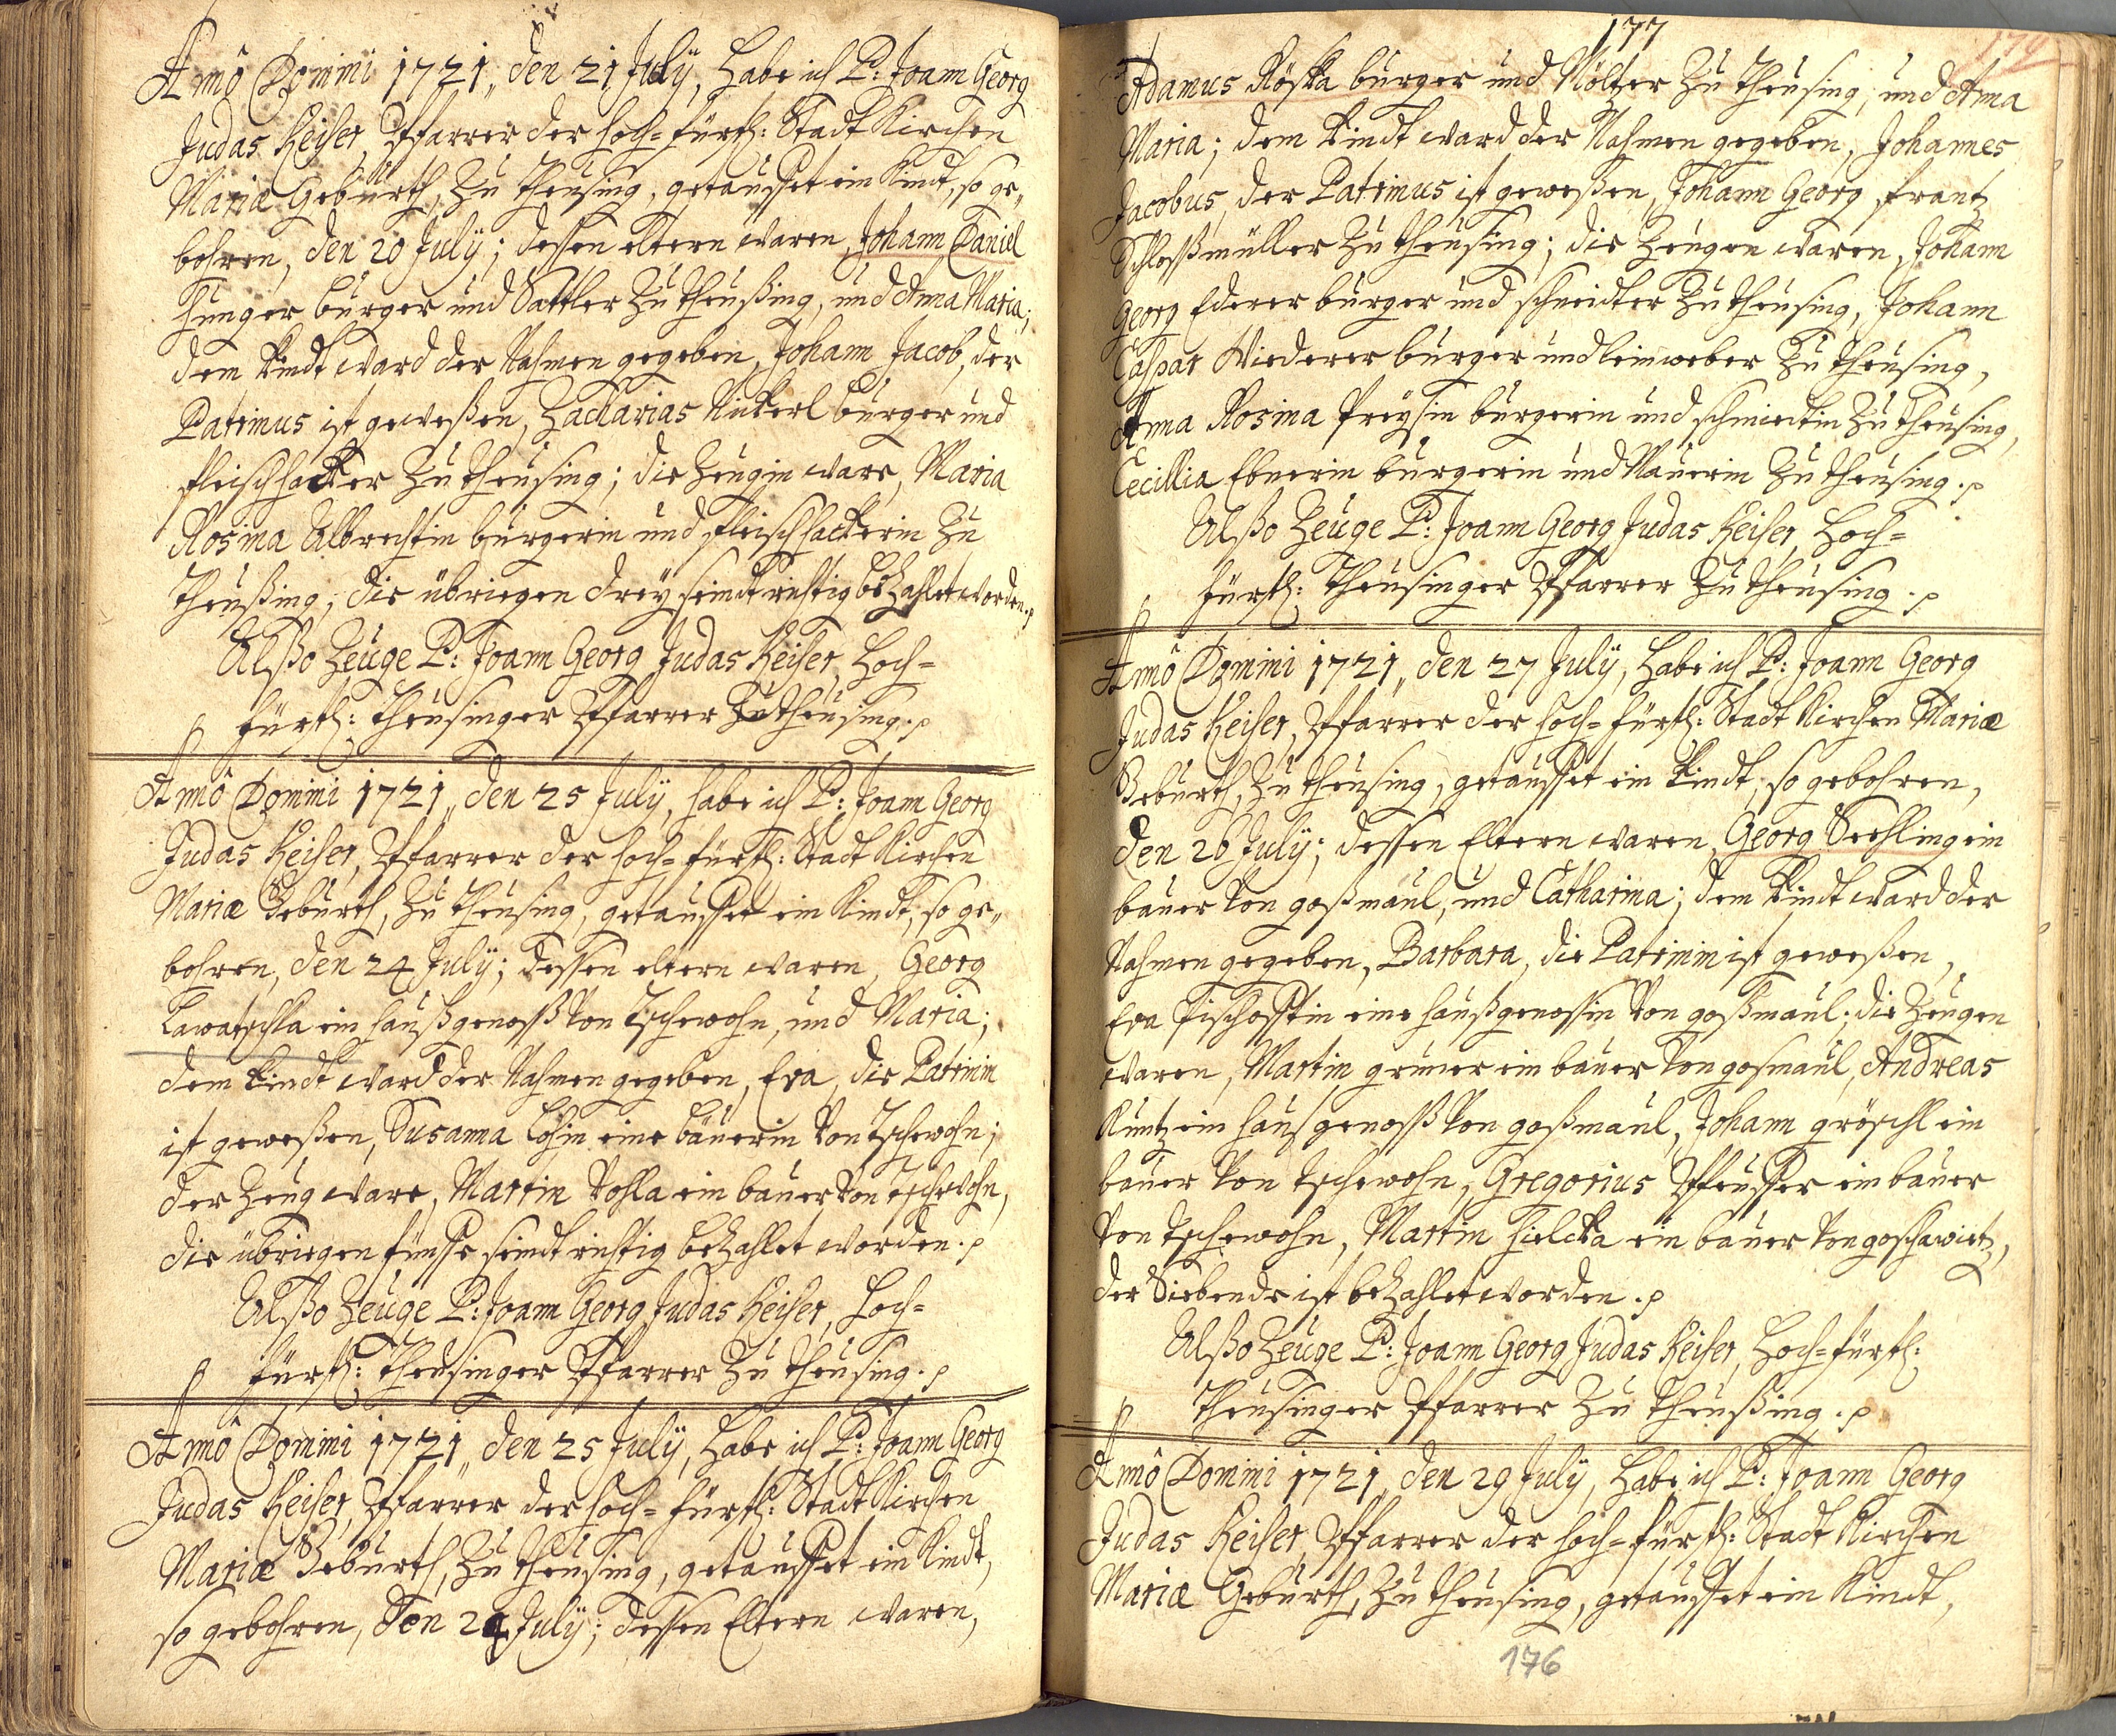 Annô Domini 1721„ den 21 Julÿ, habe ich P: Joann Georg
Judas Keiser, Pfarrer der hoch=fürstl: Stadt Kirchen
Mariæ Gebürth, zu Theüsing, getauffet ein Kindt, so ge„
bohren, den 20 Julÿ; dessen eltern waren, Johann Daniel
Hunger burger und Sattler zu Theüßing, und Anna Maria;
dem kindt ward der Nahmen gegeben, Johann Jacob, der
Patrinus ist geweßen, Zacharias Nickerl burger und
fleischhacker zu Theüsing; die Zeugin ware, Maria
Rosina Albrechtin burgerin und fleischhackerin zu
Theüßing, die übriegen dreÿ seindt richtig bezahlet worden.
Alßo Zeüge P: Joann Georg Judas Keiser, Hoch=
fürstl: Theüsinger Pfarrer zu Theüsing.
Annô Domini 1721„ den 25 Julÿ, habe ich P: Joann Georg
Judas Keiser, Pfarrer der hoch=fürstl: Stadt Kirchen
Mariæ Gebürth, zu Theüsing, getauffet ein Kindt, so ge„
bohren, den 24 Julÿ; dessen eltern waren, Georg
Lawatschka ein haußgenosß von Tschewohn, und Maria;
dem kindt ward der Nahmen gegeben, Eva, die Patrinin
ist geweßen, Susanna Löhin eine bäuerin von Tschewohn;
der Zeug ware, Martin Vohla ein bauer von Tschewohn,
die übriegen fünffe seindt richtig bezahlet worden.
Alßo Zeüge P: Joann Georg Judas Keiser, Hoch=
fürstl: Theüsinger Pfarrer zu Theüsing.
Annô Domini 1721„ den 25 Julÿ, habe ich P: Joann Georg
Judas Keiser, Pfarrer der hoch=fürstl: Stadt Kirchen
Mariæ Gebürth, zu Theüsing, getauffet ein Kindt,
so gebohren, den 24 Julÿ; dessen Eltern waren,
177
Adamus Röska burger und Mältzer zu Theüsing, und Anna
Maria; dem kindt ward der Nahmen gegeben, Johannes
Jacobus, der Patrinus ist geweßen, Johann Georg frantz
Schlossmüller zu Theüsing; die Zeugen waren, Johann
Georg Ederer burger und schneider zu Theüsing, Johann
Caspar Wiederer burger und leinweber zu Theüsing,
Anna Rosina Preÿsin burgerin und schmiedtin zu Theüsing,
Cecillia Ebnerin burgerin und Maurerin zu Theüsing.
Alßo Zeüge P: Joann Georg Judas Keiser, Hoch=
fürstl: Theüsinger Pfarrer zu Theüsing.
Annô Domini 1721„ den 27 Julÿ, habe ich P: Joann Georg
Judas Keiser, Pfarrer der hoch=fürstl: Stadt Kirchen Mariæ
Gebürth, zu Theüsing, getauffet ein kindt, so gebohren,
den 26 Julÿ; dessen Eltern waren, Georg Seehling ein
bauer von goßmaul, und Catharina; dem kindt ward der
Nahmen gegeben, Barbara, die Patrinin ist geweßen,
Eva Pischofftin eine haußgenossin von goßmaul; die Zeugen
waren, Martin grüner ein bauer von gosmaul, Andreas
Kuntz ein hausgenosß von goßmaul, Johann gröschl ein
bauer von Tschewohn, Gregorius Pfeuffer ein bauer
von Tschewohn, Martin Hielcka ein bauer von goschawitz,
der Siebende ist bezahlet worden.
Alßo Zeüge P: Joann Georg Judas Keiser, Hoch=fürstl:
Theüsinger Pfarrer zu Theüßing.
Annô Domini 1721„ den 29 Julÿ, habe ich P: Joann Georg
Judas Keiser, Pfarrer der hoch=fürstl: Stadt Kirchen
Mariæ Gebürth, zu Theüsing, getauffet ein Kindt,
176